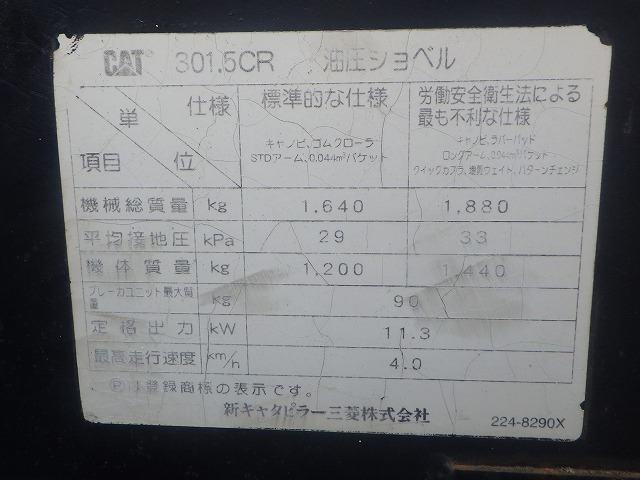 CAT 301.5CR 油圧ショベル
仕様
単位
項目
標準的な仕様
キャノピ、ゴムクローラ
STDアーム、0.044m³バケット
労働安全衛生法による
最も不利な仕様
キャノピ、ラバーパッド
ロングアーム、0.044m³バケット
クイックカプラ、増量ウェイト、パターンチェンジ
機械総質量 kg 1,640 1,880
平均接地圧 kPa 29 33
機体質量 kg 1,200 1,440
ブレーカユニット最大質量 kg 90
定格出力 kW 11.3
最高走行速度 km/h 4.0
Ⓡは登録商標の表示です。
新キャタピラー三菱株式会社
224-8290X